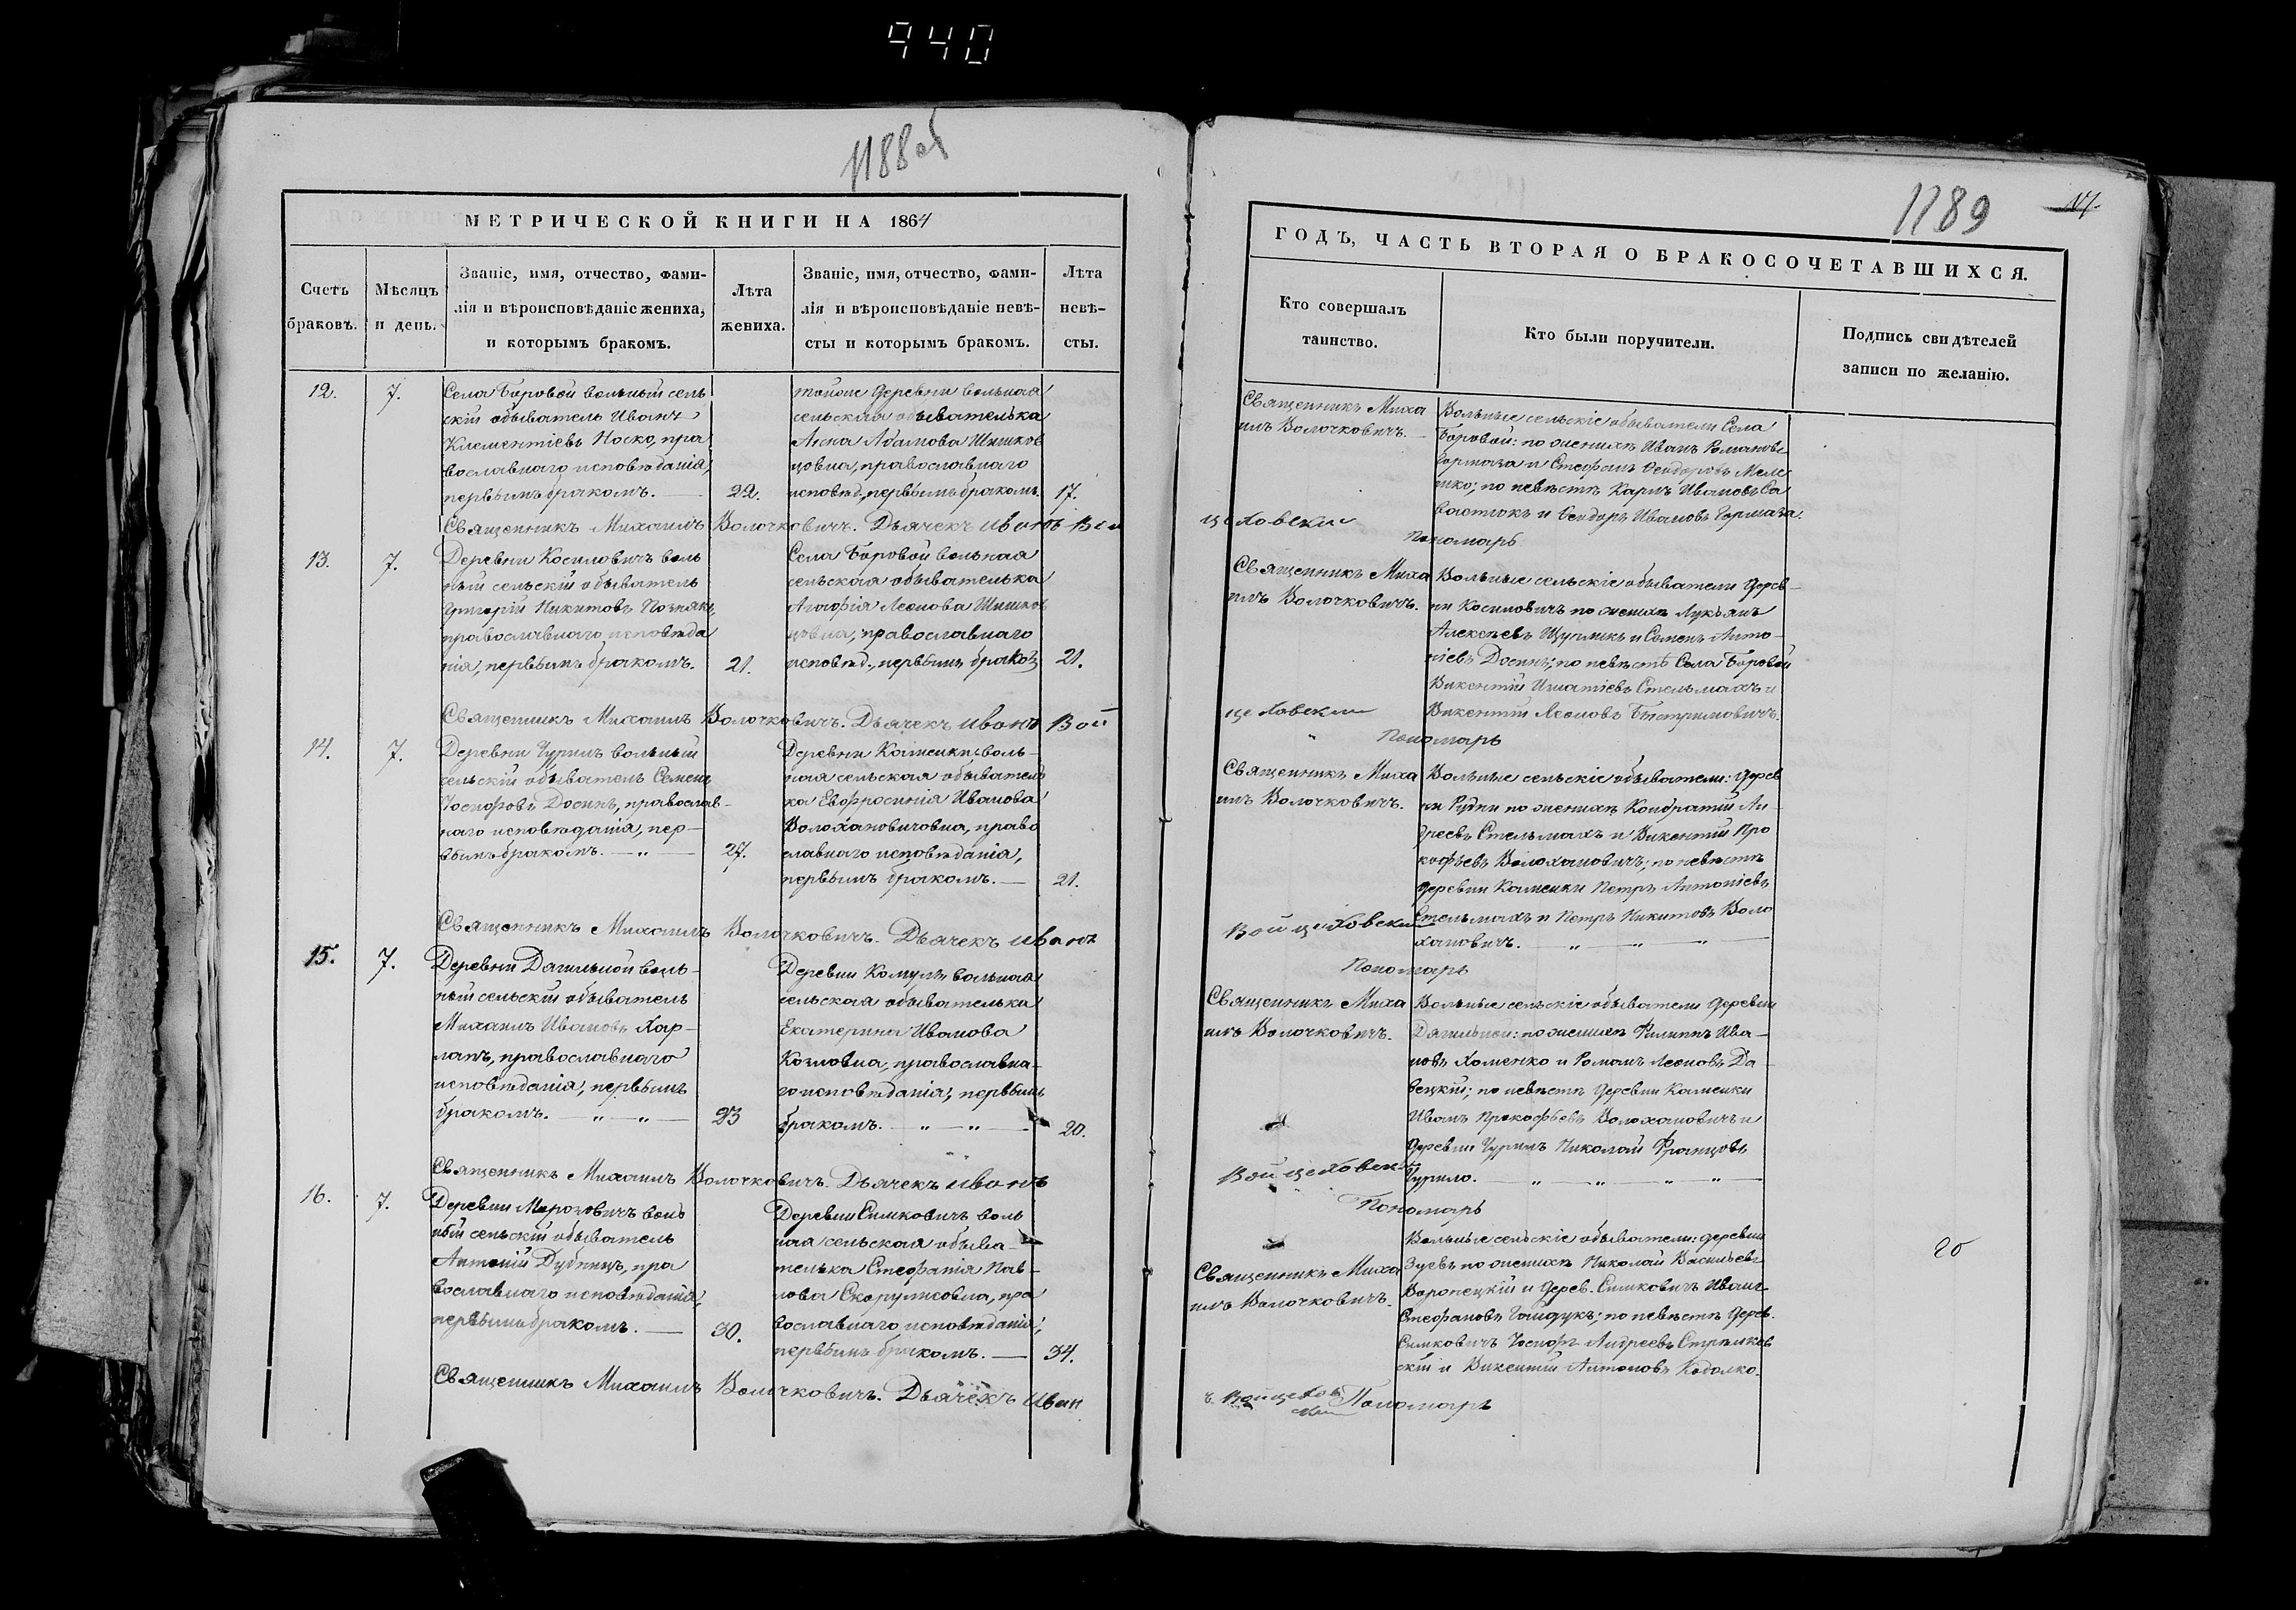 940
1188об
МЕТРИЧЕСКОЙ КНИГИ НА 1864
Счетъ браковъ.
Мѣсяцъ и день.
Званіе, имя, отчество, фами-
лія и вѣроисповѣданіе жениха,
и которымъ бракомъ.
Лѣта жениха.
Званіе, имя, отчество, фами-
лія и вѣроисповѣданіе невѣ-
сты и которымъ бракомъ.
Лѣта невѣ-
сты.
12.
7.
Села Боровой вольный сель
скій обыватель Иванъ
Клементіевъ Носко, пра
вославнаго исповѣданія,
первымъ бракомъ.
22.
тойже деревни вольная
сельская обывателька
Анна Адамова Шишков
цовна, православнаго
исповѣд., первымъ бракомъ.
17.
Священникъ Михаилъ Волочковичъ. Дьячекъ Иванъ Вой
13.
7.
Деревни Косиловичъ воль
ный сельскій обыватель
Григорій Никитовъ Познякъ,
православнаго исповѣда
нія, первымъ бракомъ.
21.
Села Боровой вольная
сельская обывателька
Агафія Леонова Шишков
цовна, православнаго
исповѣд., первымъ браком
21.
Священникъ Михаилъ Волочковичъ. Дьячекъ Иванъ Вой
14.
7.
Деревни Чурилъ вольный
сельскій обыватель Семенъ
Іосифовъ Досинъ, православ-
наго исповѣданія, пер-
вымъ бракомъ. — „ —
27.
Деревни Каменки воль-
ная сельская обыватель
ка Евфросинія Иванова
Волохановичовна, право
славнаго исповѣданія,
первымъ бракомъ. —
21.
Священникъ Михаилъ Волочковичъ. Дьячекъ Иванъ
15.
7.
Деревни Дягильной воль-
ный сельскій обыватель
Михаилъ Ивановъ Хар-
лапъ, православнаго
исповѣданія, первымъ
бракомъ. — „ — „ —
23
Деревни вольная
сельская обывателька
Екатерина Иванова
Козловна, православна-
го исповѣданія, первымъ
бракомъ. — „ — „ —
20.
Священникъ Михаилъ Волочковичъ. Дьячекъ Иванъ
16.
7.
Деревни воль
ный сельскій обыватель
Антоній Дубницъ, пра
вославнаго исповѣданія,
первымъ бракомъ. —
30.
Деревни Симковичъ воль
ная сельская обыва-
телька Стефанія Пав-
лова пра
вославнаго исповѣданія,
первымъ бракомъ. —
34.
Священникъ Михаилъ Волочковичъ. Дьячекъ Иван
1189
117
ГОДЪ, ЧАСТЬ ВТОРАЯ О БРАКОСОЧЕТАВШИХСЯ.
Кто совершалъ
таинство.
Кто были поручители.
Подпись свидѣтелей
записи по желанію.
Священникъ Миха
илъ Волочковичъ.
Вольные сельскіе обыватели Села
Боровой: по женихѣ Иванъ Романовъ
Гормаза и Стефанъ Феодоровъ
по невѣстѣ Карпъ Ивановъ Са
и Феодоръ Ивановъ Гормаза.
цеховски
Пономарь
Священникъ Миха
илъ Волочковичъ.
Вольные сельскіе обыватели дерев-
ни Косиловичъ по женихѣ Лукьянъ
Алексѣевъ и Семенъ Анто-
ніевъ Досинъ; по невѣстѣ Села Боровой
Викентій Игнатіевъ Стельмахъ и
Викентій Леоновъ
цеховски
Пономарь
Священникъ Миха
илъ Волочковичъ.
Вольные сельскіе обыватели: дерев
ни Рудни по женихѣ Кондратій Ан-
дреевъ Стельмахъ и Викентій Про
кофьевъ Волохановичъ; по невѣстѣ
деревни Каменки Петръ Антоніевъ
Стельмахъ и Петръ Никитовъ Воло
хановичъ. — „ — „ — „ —
Войцеховски
Пономарь
Священникъ Миха
илъ Волочковичъ.
Вольные сельскіе обыватели деревни
Дягильной: по женихѣ Филиппъ Ива-
новъ Хоменко и Романъ Леоновъ Да
вецкій; по невѣстѣ деревни Каменки
Иванъ Прокофьевъ Волохановичъ и
деревни Чурилъ Николай Францовъ
Чурило. — „ — „ — „ — „ —
Войцеховски
Пономарь
Священникъ Миха
илъ Волочковичъ.
Вольные сельскіе обыватели: деревни
Зуевъ по женихѣ Николай Васильевъ
Воронецкій и дерев. Симковичъ Иванъ
Стефановъ Гайдукъ; по невѣстѣ дерев.
Симковичъ Іосифъ Андреевъ
скій и Викентій Антоновъ
ъ Войцехов
ски
Пономарь
20